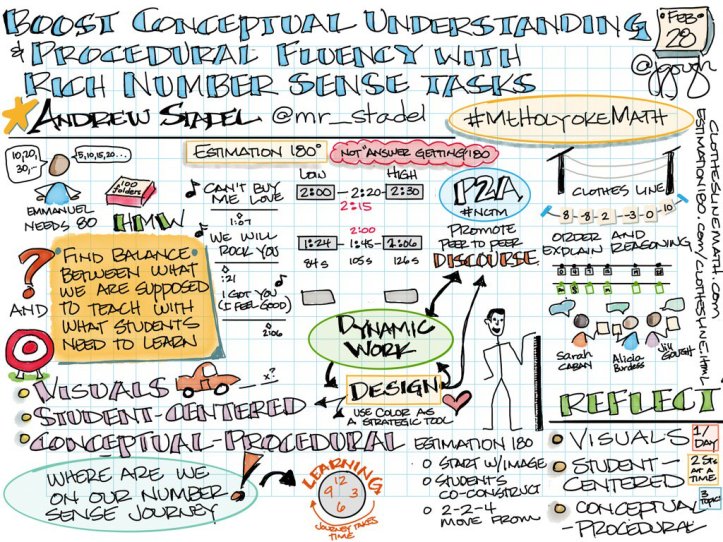 BOOST CONCEPTUAL UNDERSTANDING
& PROCEDURAL FLUENCY WITH
RICH NUMBER SENSE TASKS
FEB
28
@jgough
ANDREW STADEL @mr_stadel
#MtHolyokeMath
10, 20,
30, —
5, 10, 15, 20...
EMMANUEL
NEEDS 80
100
folders
HMW
?
AND
FIND BALANCE
BETWEEN WHAT
WE ARE SUPPOSED
TO TEACH WITH
WHAT STUDENTS
NEED TO LEARN
ESTIMATION 180°
NOT "ANSWER GETTING" 180
CAN'T BUY
ME LOVE
1:07
WE WILL
ROCK YOU
:21
I GOT YOU
(I FEEL GOOD)
2:06
LOW
HIGH
2:00 — 2:20 — 2:30
2:15
2:00
1:24 — 1:45 — 2:06
84s 105s 126s
P2A
#NCTM
PROMOTE
PEER TO PEER
DISCOURSE
CLOTHES LINE
ORDER AND
EXPLAIN REASONING
Sarah
CABAN
Alicia
Burdess
Jill
GOUGH
CLOTHESLINEMATH.COM
ESTIMATION180.COM/CLOTHESLINE.HTML
DYNAMIC
WORK
DESIGN
USE COLOR AS
A STRATEGIC TOOL
VISUALS
x?
STUDENT-CENTERED
CONCEPTUAL-PROCEDURAL
WHERE ARE WE
ON OUR NUMBER
SENSE JOURNEY
LEARNING
12
9 3
6
JOURNEY TAKES
TIME
ESTIMATION 180
START W/IMAGE
STUDENTS
CO-CONSTRUCT
2-2-4
MOVE FROM
REFLECT
VISUALS
1/
DAY
STUDENT-
CENTERED
2 Sts
AT A
TIME
CONCEPTUAL
-PROCEDURAL
3
Topic